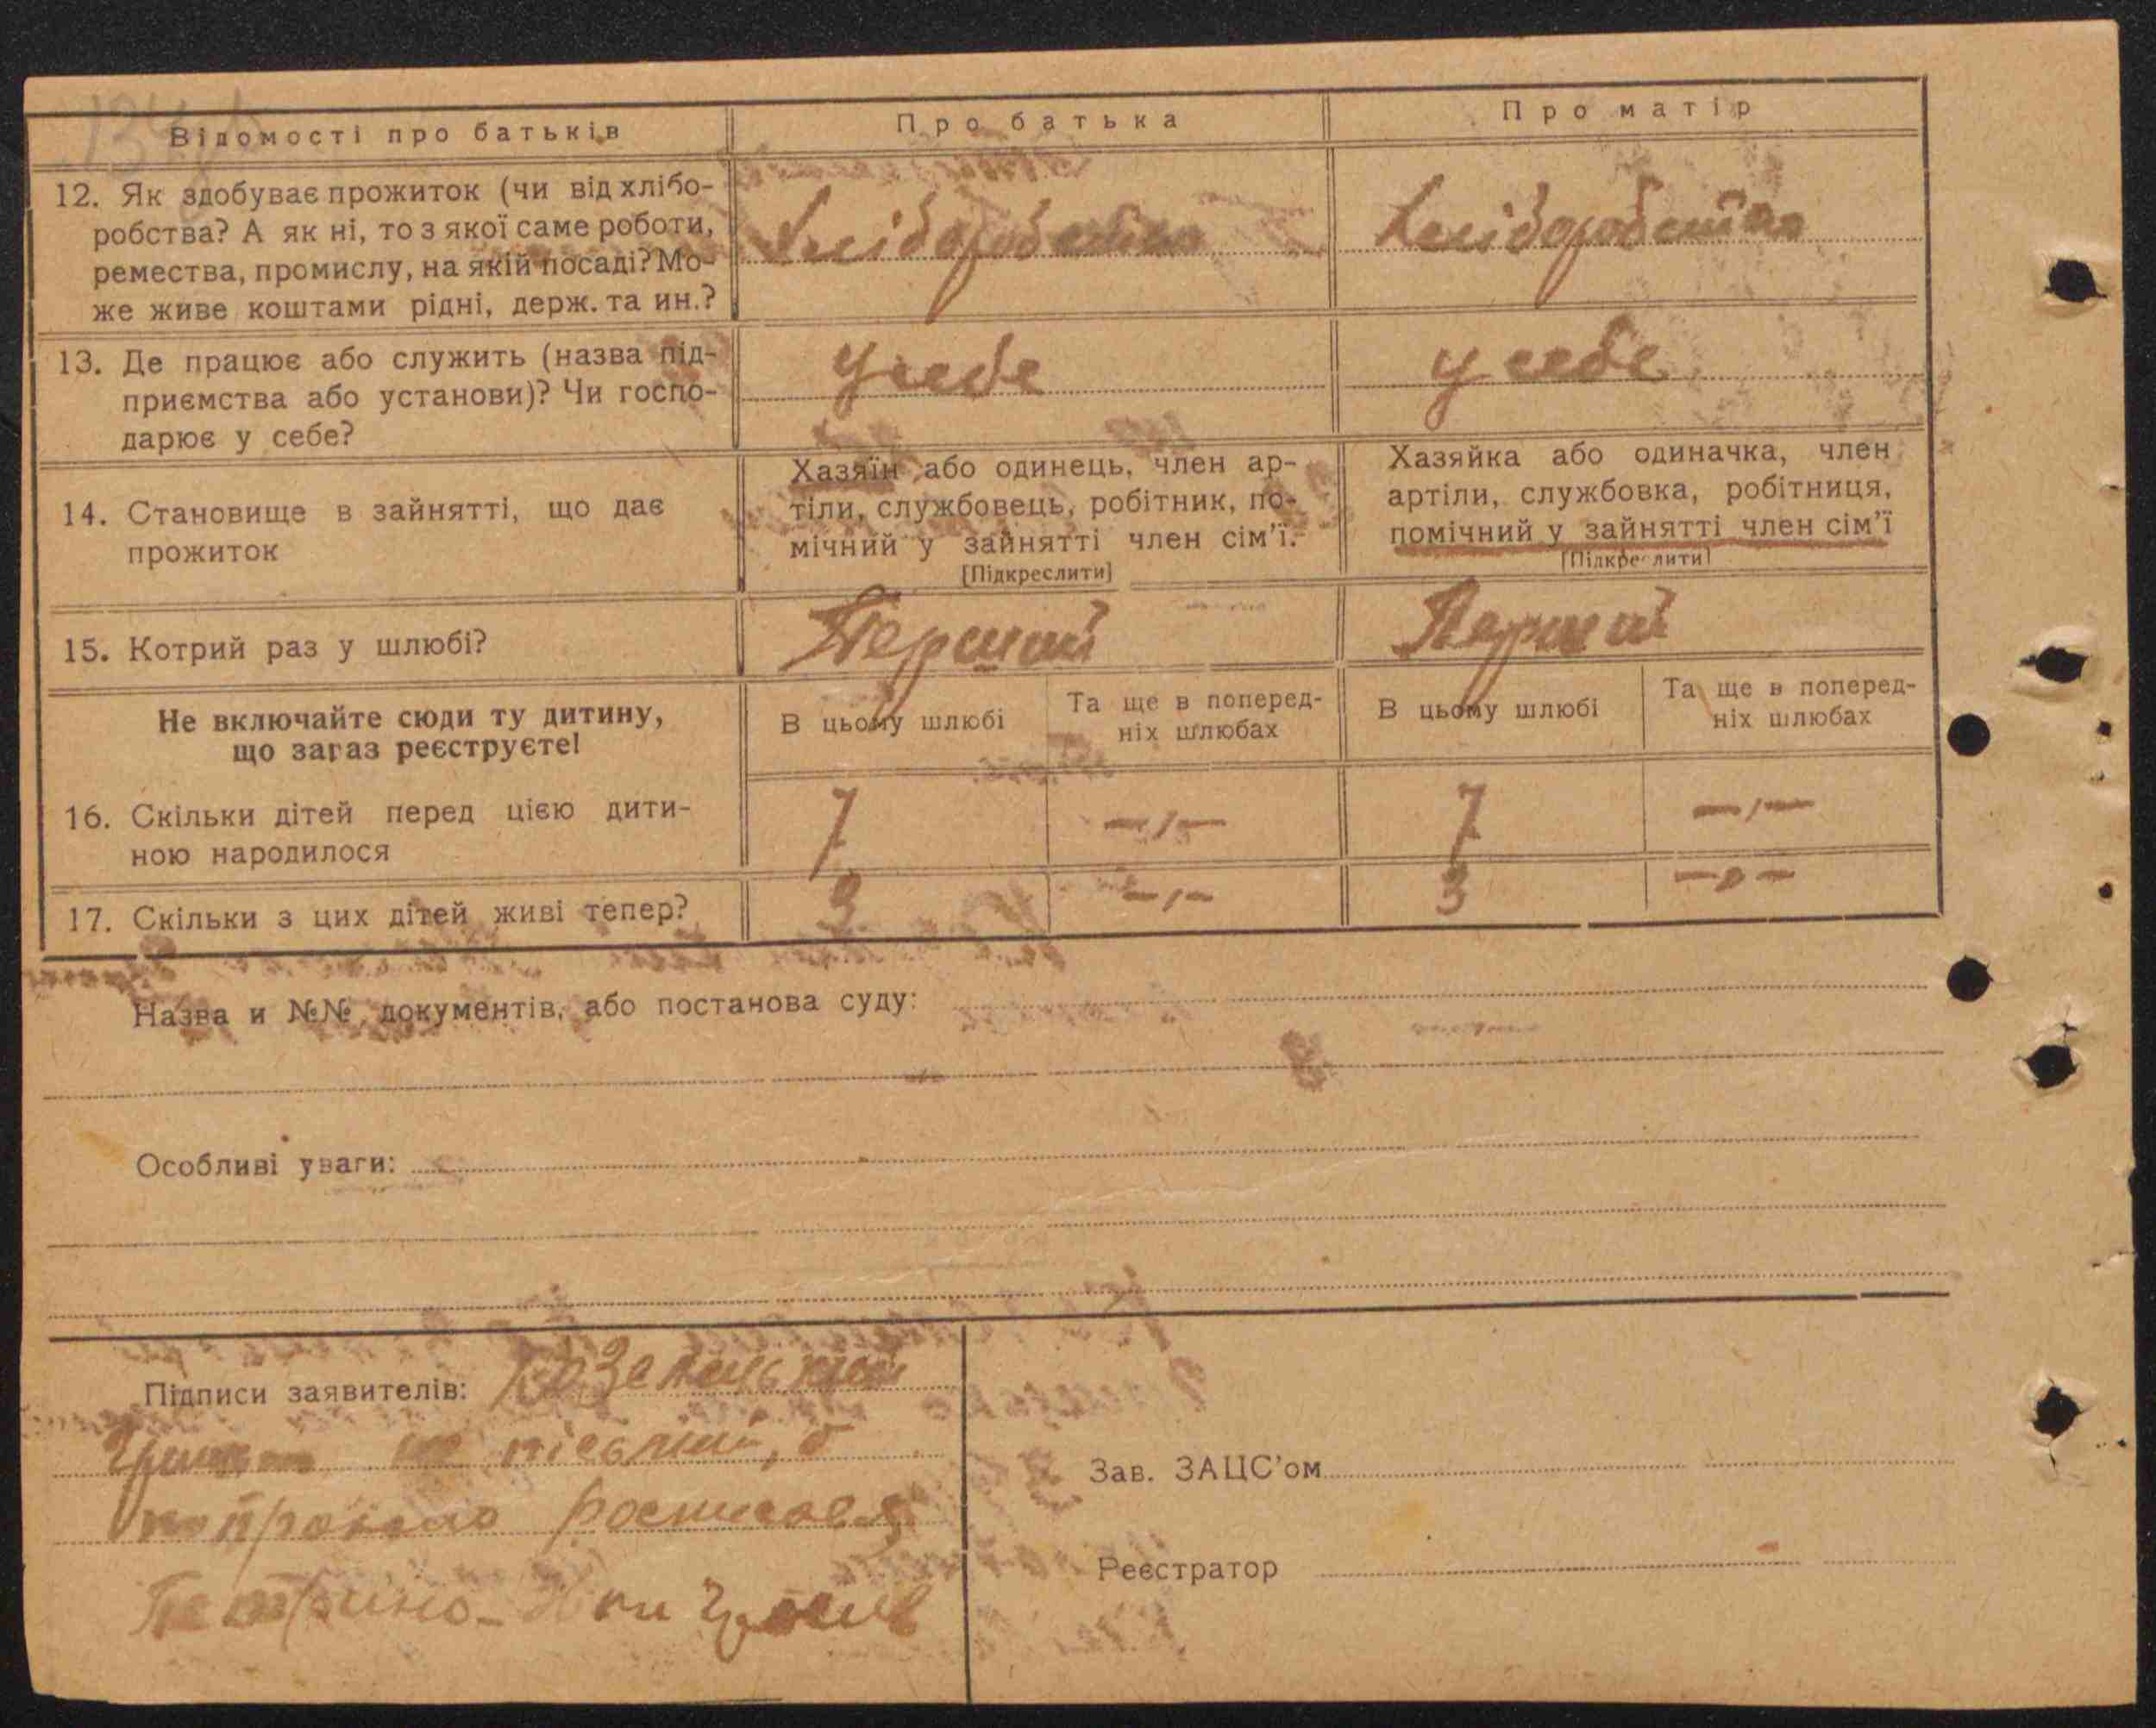 Відомості про батьків
Про батька
Про матір
12. Як здобуває прожиток (чи від хлібо-
робства? А як ні, то з якої саме роботи,
ремества, промислу, на якій посаді? Мо-
же живе коштами рідні, держ. та ин.?
Хліборобство
Хліборобство
13. Де працює або служить (назва під-
приємства або установи)? Чи госпо-
дарює у себе?
у себе
у себе
14. Становище в зайнятті, що дає
прожиток
Хазяїн або одинець, член ар-
тіли, службовець, робітник, по-
мічний у зайнятті член сім'ї.
[Підкреслити]
Хазяйка або одиначка, член
артіли, службовка, робітниця,
помічний у зайнятті член сім'ї
[Підкреслити]
15. Котрий раз у шлюбі?
Перший
Перший
Не включайте сюди ту дитину,
що зараз реєструєте!
В цьому шлюбі
Та ще в поперед-
ніх шлюбах
В цьому шлюбі
Та ще в поперед-
ніх шлюбах
16. Скільки дітей перед цією дити-
ною народилося
7
—,—
7
—,—
17. Скільки з цих дітей живі тепер?
3
—,—
3
—,—
Назва и №№ документів, або постанова суду:
Особливі уваги:
Підписи заявителів:
росписався
Зав. ЗАЦС'ом
Реєстратор